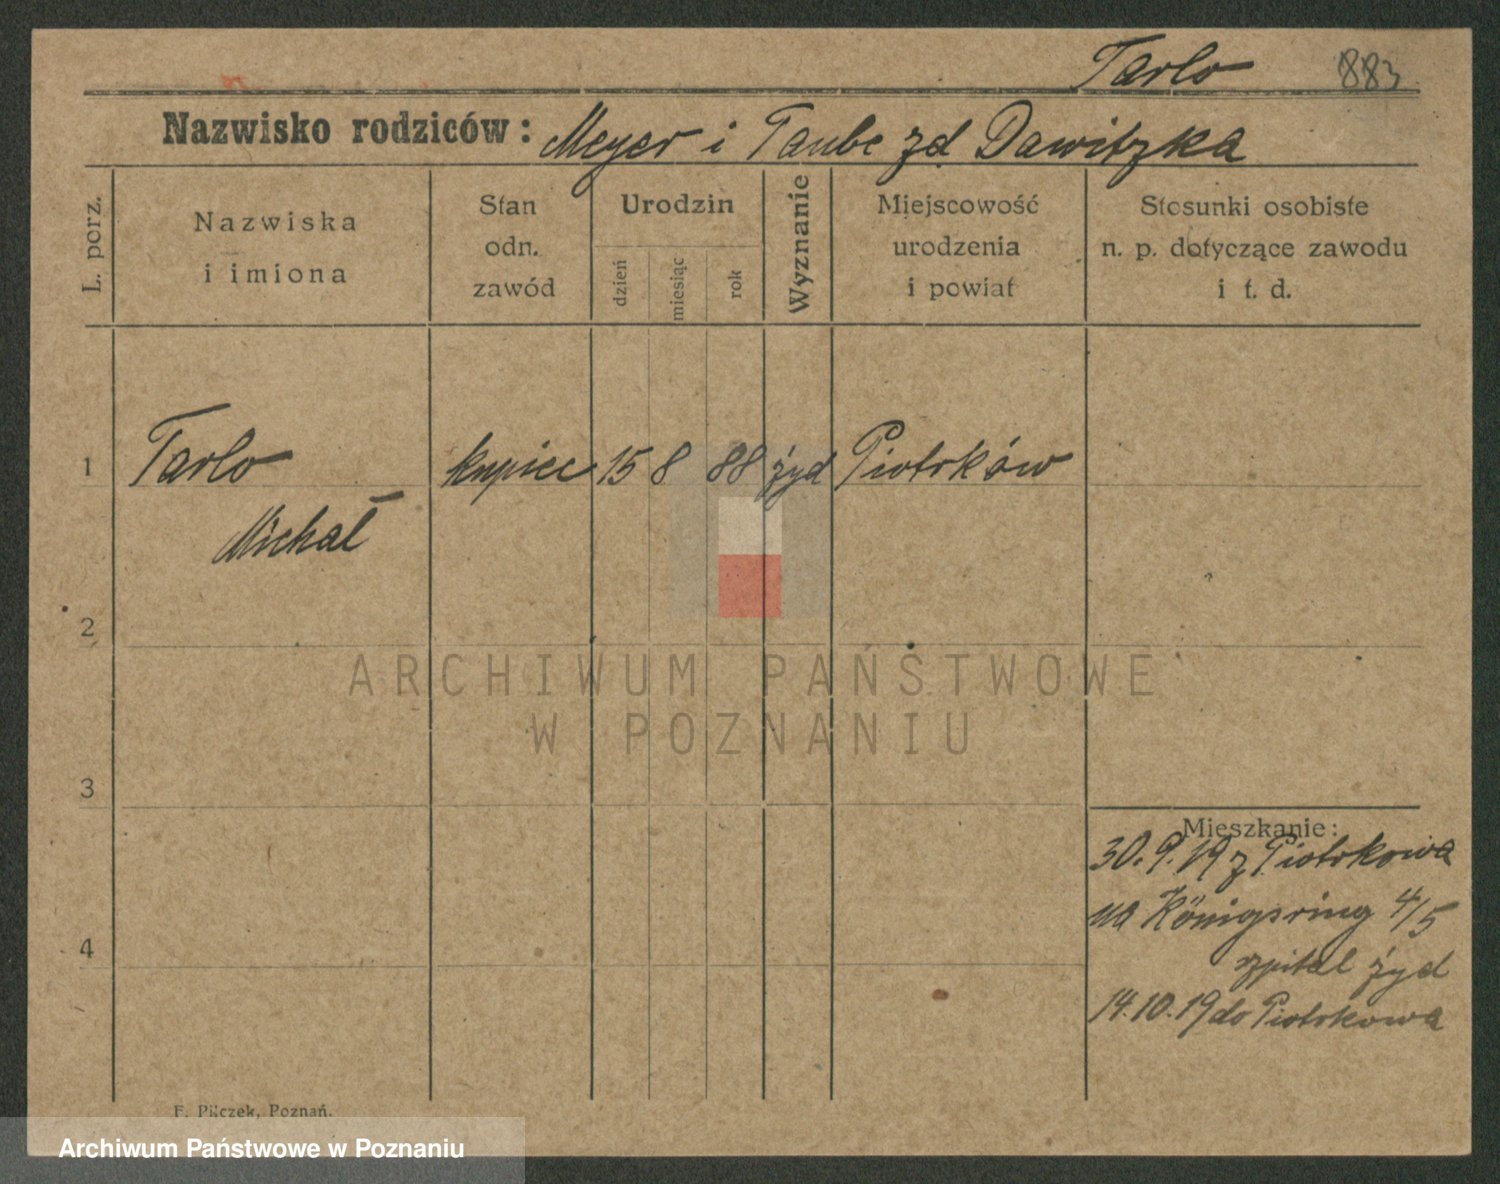 Tarlo 883
Nazwisko rodziców: Meyer i Taube zd Dawitzka
L. porz.
Nazwiska
i imiona
Stan
odn.
zawód
Urodzin
dzień
miesiąc
rok
Wyznanie
Miejscowość
urodzenia
i powiat
Stosunki osobiste
n. p. dotyczące zawodu
i t. d.
1 Tarlo kupiec 15 8 88 żyd Piotrków
Michał
2
ARCHIWUM PAŃSTWOWE
W POZNANIU
3
Mieszkanie:
30.9.19 z Piotrkowa
na Königsring 4/5
4
szpital żyd
14.10.19 do Piotrkowa
F. Pilczek, Poznań.
Archiwum Państwowe w Poznaniu